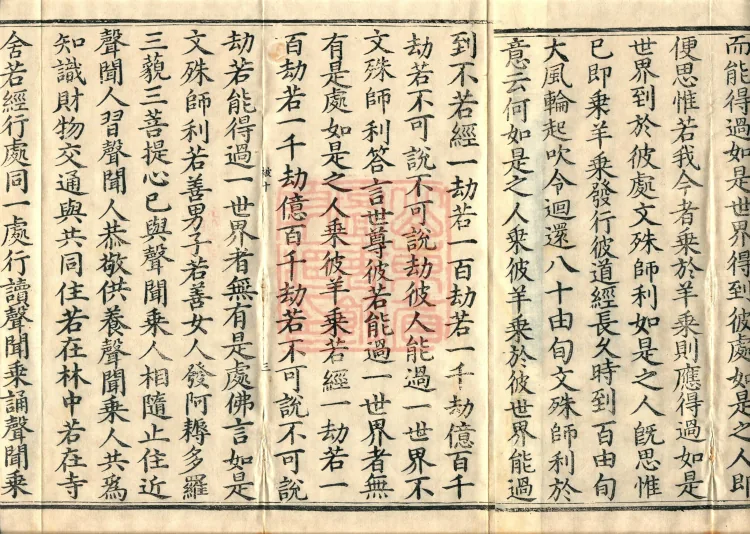 而能得過如是世界得到彼處如是之人即
便思惟若我今者乘於羊乘則應得過如是
世界到於彼處文殊師利如是之人旣思惟
已即乘羊乘發行彼道經長久時到百由旬
大風輪起吹令迴還八十由旬文殊師利於
意云何如是之人乘彼羊乘於彼世界能過
到不若經一劫若一百劫若一千劫億百千
劫若不可說不可說劫彼人能過一世界不
文殊師利答言世尊彼若能過一世界者無
有是處如是之人乘彼羊乘若經一劫若一
百劫若一千劫億百千劫若不可說不可說
劫若能得過一世界者無有是處佛言如是
文殊師利若善男子若善女人發阿耨多羅
三藐三菩提心已與聲聞乘人相隨止住近
聲聞人習聲聞人恭敬供養聲聞乘人共爲
知識財物交通與共同住若在林中若在寺
舍若經行處同一處行讀聲聞乘誦聲聞乘